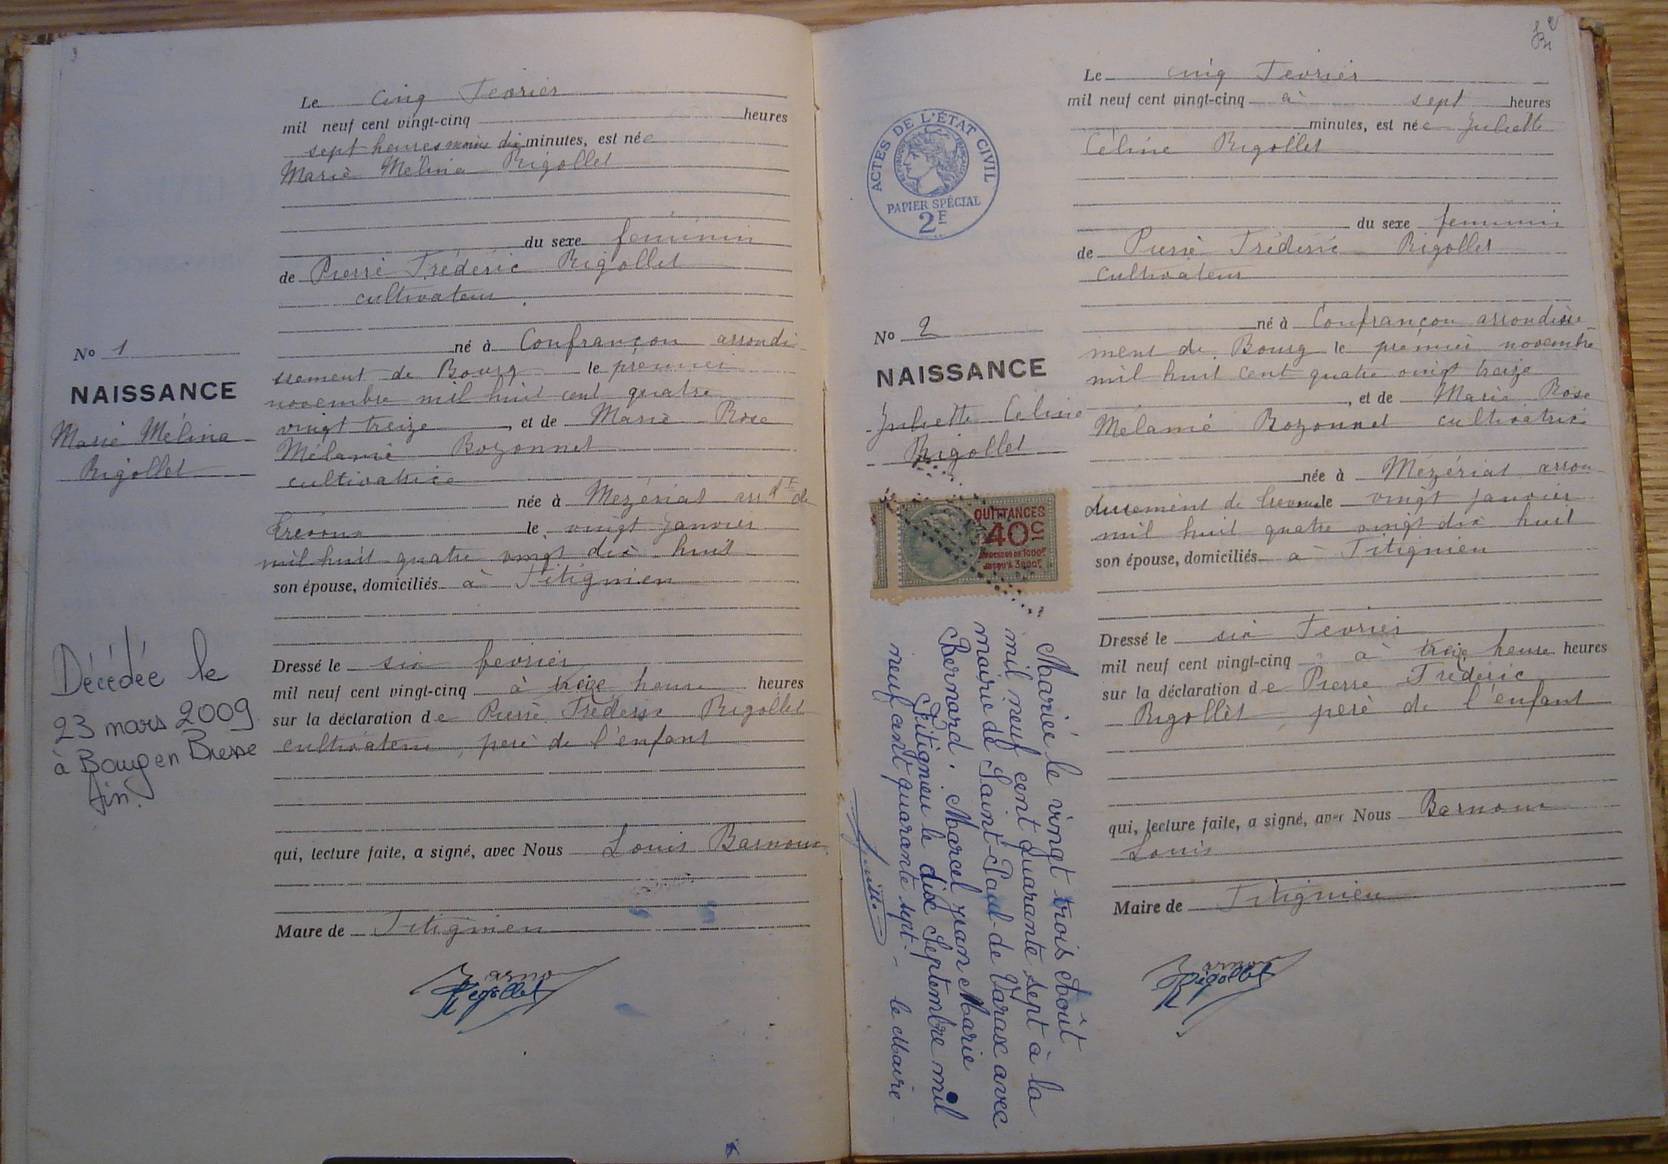 Le cinq Fevrier
mil neuf cent vingt-cinq heures
sept heures moins dix minutes, est née
Marie Mélina Rigollet
du sexe féminin
de Pierre Frédéric Rigollet
cultivateur
né à Confrançon arrondi
No 1
NAISSANCE
Marie Mélina
Rigollet
ssement de Bourg le premier
novembre mil huit cent quatre
vingt treize, et de Marie Rose
Mélanie Bozonnet
cultivatrice
née à Mézériat arrdt de
Trevoux le vingt Janvier
mil huit quatre vingt dix huit
son épouse, domiciliés à Fitignieu
Dressé le six fevrier
mil neuf cent vingt-cinq à treize heure heures
sur la déclaration de Pierre Fréderic Rigollet
cultivateur, père de l'enfant
qui, lecture faite, a signé, avec Nous Louis Barnoux
Maire de Fitignieu
Décédée le
23 mars 2009
à Bourg en Bresse
Ain.
Rigollet
2
Le cinq Fevrier
mil neuf cent vingt-cinq à sept heures
minutes, est née Juliette
Céline Rigollet
du sexe feminin
de Pierre Fréderic Rigollet
cultivateur
né à Confrançon arrondisse
ment de Bourg le premier novembre
mil huit cent quatre vingt treize
, et de Marie Rose
Mélanie Bozonnet cultivatrice
née à Mézériat arron
dissement de Trevoux le vingt janvier
mil huit quatre vingt dix huit
son épouse, domiciliés à Fitignieu
Dressé le six Fevrier
mil neuf cent vingt-cinq à treize heure heures
sur la déclaration de Pierre Fréderic
Rigollet, père de l'enfant
qui, lecture faite, a signé, avec Nous Barnoux
Louis
Maire de Fitignieu
Rigollet
ACTES DE L'ÉTAT CIVIL
PAPIER SPÉCIAL
2F
No 2
NAISSANCE
Juliette Céline
Rigollet
QUITTANCES
40c
Mariée le vingt trois Août
mil neuf cent quarante sept à la
mairie de Saint Paul de Varax avec
Bernard, Marcel Jean Marie
Fitignieu le dix Septembre mil
neuf cent quarante sept - le Maire -